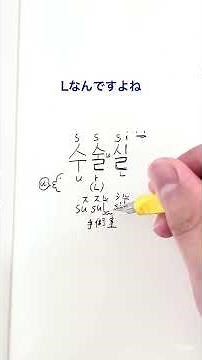 Lなんですよね
s s s i
수술실
u u L
(L)
ス スル シル
su sul sil
手術室